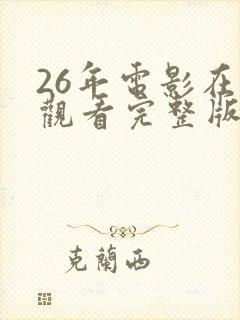 26年電影在
觀看完整版
克蘭西